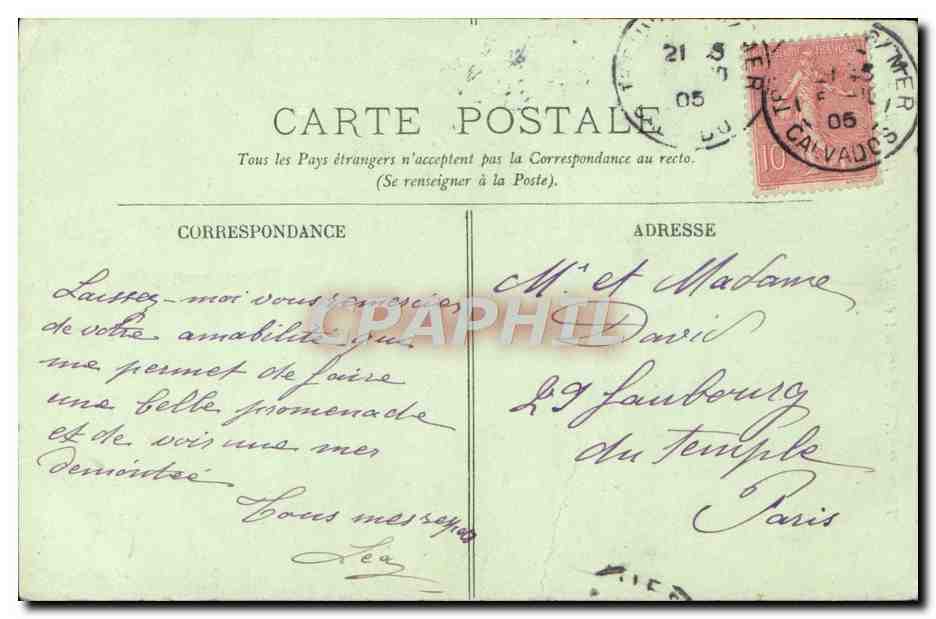 CARTE POSTALE
Tous les Pays étrangers n'acceptent pas la Correspondance au recto.
(Se renseigner à la Poste).
CORRESPONDANCE
ADRESSE
Laissez-moi vous remercier
de votre amabilité qui
me permet de faire
une belle promenade
et de voir une mer
démontée
Tous mes respects
Léa
Mr et Madame
David
29 faubourg
du Temple
Paris
21 5
05
DU
S/MER
05
CALVADOS
10
CPAPHIL